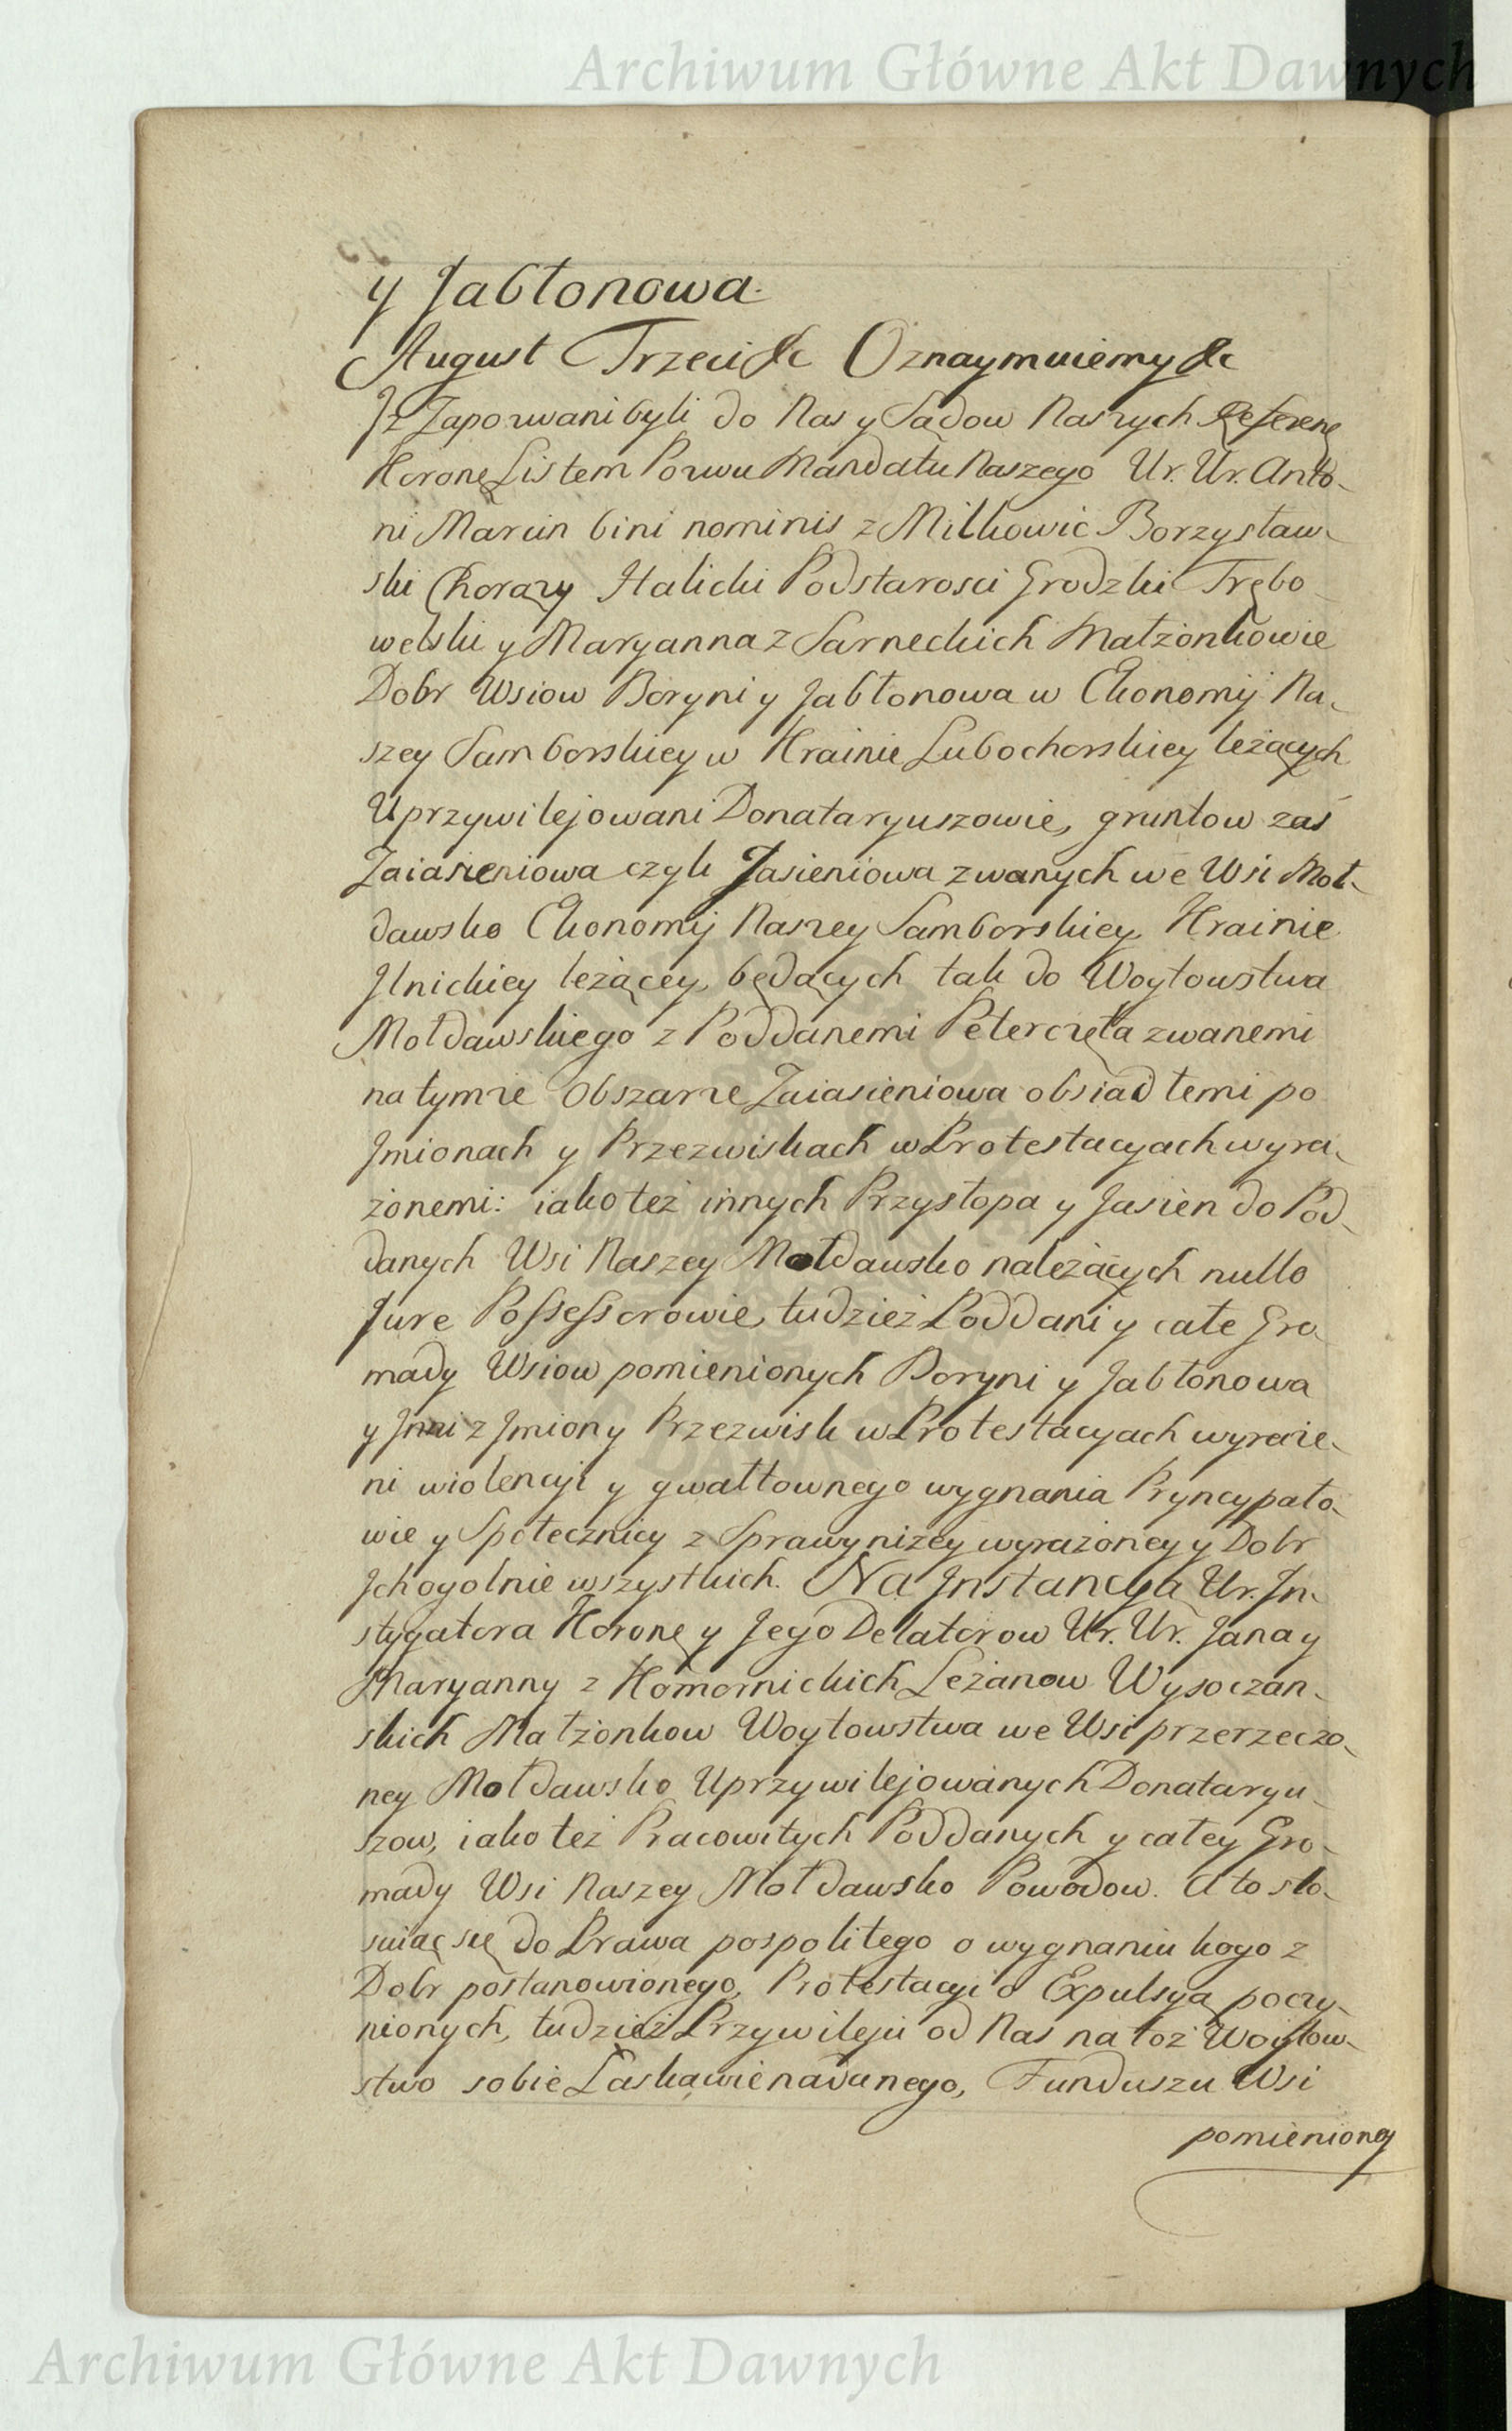 Archiwum Główne Akt Dawnych
y Jabłonowa.
August Trzeci &c Oznaymuiemy &c
Jż Zapozwani byli do Nas y Sądow Naszych Referenę
Koronę Listem Pozwu Mandatu Naszego Ur. Ur. Anto-
ni Marcin bini nominis z Milkowic Borzysław-
ski Chorąży Halicki Podstarosci Grodzki Trębo-
welski y Maryanna z Sarneckich Małżonkowie
Dobr Wsiow Boryni y Jabłonowa w Ekonomij Na-
szey Samborskiey w Krainie Lubochorskiey leżących
Uprzywilejowani Donataryuszowie, gruntow zaś
Zaiasieniowa czyli Jasieniowa zwanych we Wsi Moł-
dawsko Ekonomij Naszey Samborskiey Krainie
Jlnickiey leżącey, będących tak do Woytowstwa
Mołdawskiego z Poddanemi Peterczęta zwanemi
na tymże Obszarze Zaiasieniowa obsiadłemi po
Jmionach y Przezwiskach w Protestacyach wyra-
żonemi: iako też innych Przysłopa y Jasien do Pod-
danych Wsi Naszey Mołdawsko należących nullo
Jure Possessorowie, tudzież Poddani y całe Gro-
mady Wsiow pomienionych Boryni y Jabłonowa
y Jnni z Jmion y Przezwisk w Protestacyach wyraże-
ni wiolencyi y gwałtownego wygnania Pryncypało-
wie y Społecznicy z Sprawy niżey wyrażoney y Dobr
Jch ogolnie wszystkich. Na Jnstancyą Ur. Jn-
stygatora Koronę y Jego Delatorow Ur. Ur. Jana y
Maryanny z Komornickich Leżanow Wysoczan-
skich Małżonkow Woytowstwa we Wsi przerzeczo-
ney Mołdawsko Uprzywilejowanych Donataryu-
szow, iako też Pracowitych Poddanych y całey Gro-
mady Wsi Naszey Mołdawsko Powodow. A to sto-
suiąc się do Prawa pospolitego o wygnaniu kogo z
Dobr postanowionego, Protestacyi o Expulsyą poczy-
nionych, tudzież Przywileju od Nas na toż Woytow-
stwo sobie Łaskawie nadanego, Funduszu Wsi
pomienioney
Archiwum Główne Akt Dawnych